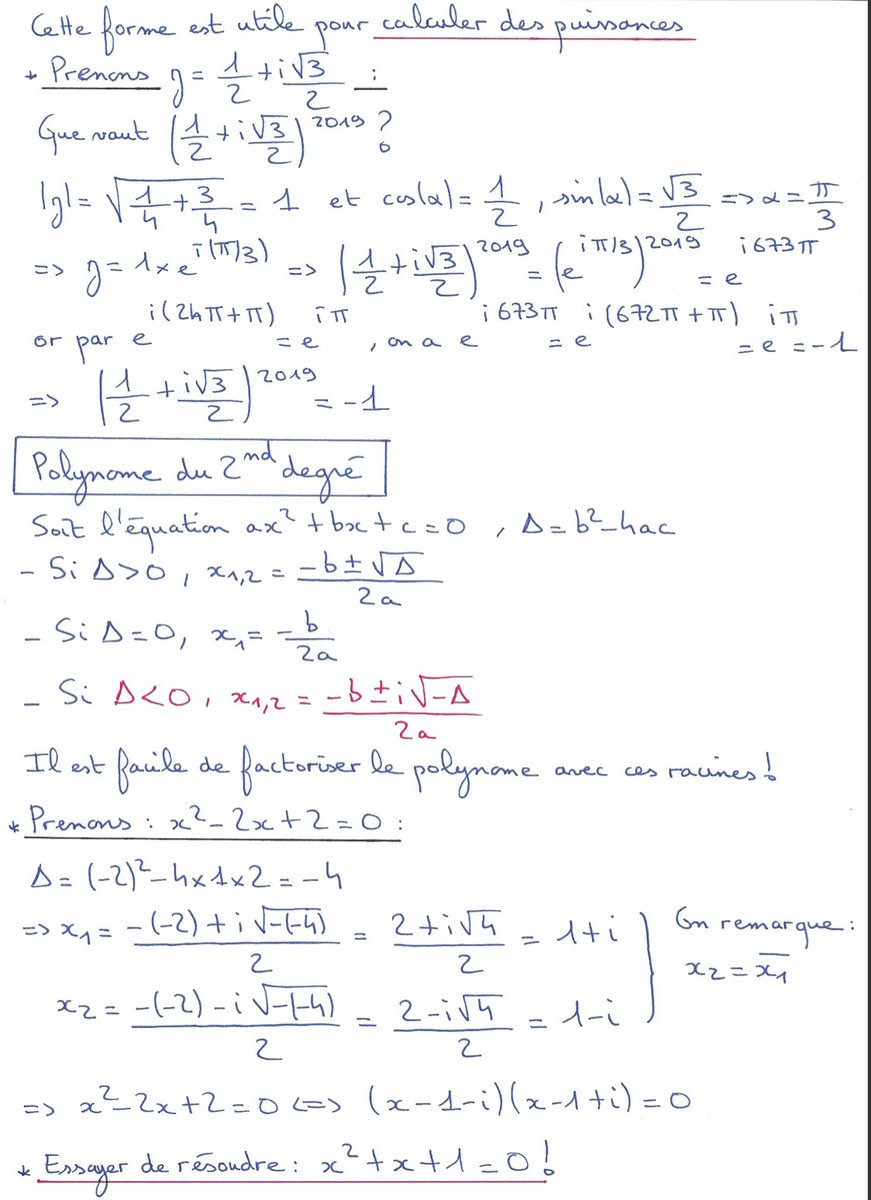 Cette forme est utile pour calculer des puissances
* Prenons z = 1/2 + i√3/2 :
Que vaut (1/2 + i√3/2)^2019 ?
|z| = √(1/4 + 3/4) = 1 et cos(α) = 1/2 , sin(α) = √3/2 => α = π/3
=> z = 1 × e^i(π/3) => (1/2 + i√3/2)^2019 = (e^iπ/3)^2019 = e^i673π
or par e^i(2kπ+π) = e^iπ , on a e^i673π = e^i(672π+π) = e^iπ = -1
=> (1/2 + i√3/2)^2019 = -1
Polynome du 2nd degré
Soit l'équation ax² + bx + c = 0 , Δ = b² - 4ac
- Si Δ > 0 , x1,2 = (-b ± √Δ)/2a
- Si Δ = 0, x1 = -b/2a
- Si Δ < 0 , x1,2 = (-b ± i√-Δ)/2a
Il est facile de factoriser le polynome avec ces racines !
* Prenons : x² - 2x + 2 = 0 :
Δ = (-2)² - 4×1×2 = -4
=> x1 = (-(-2) + i√-(-4))/2 = (2 + i√4)/2 = 1 + i
x2 = (-(-2) - i√-(-4))/2 = (2 - i√4)/2 = 1 - i
On remarque :
x2 = x̅1
=> x² - 2x + 2 = 0 <=> (x - 1 - i)(x - 1 + i) = 0
* Essayer de résoudre : x² + x + 1 = 0 !